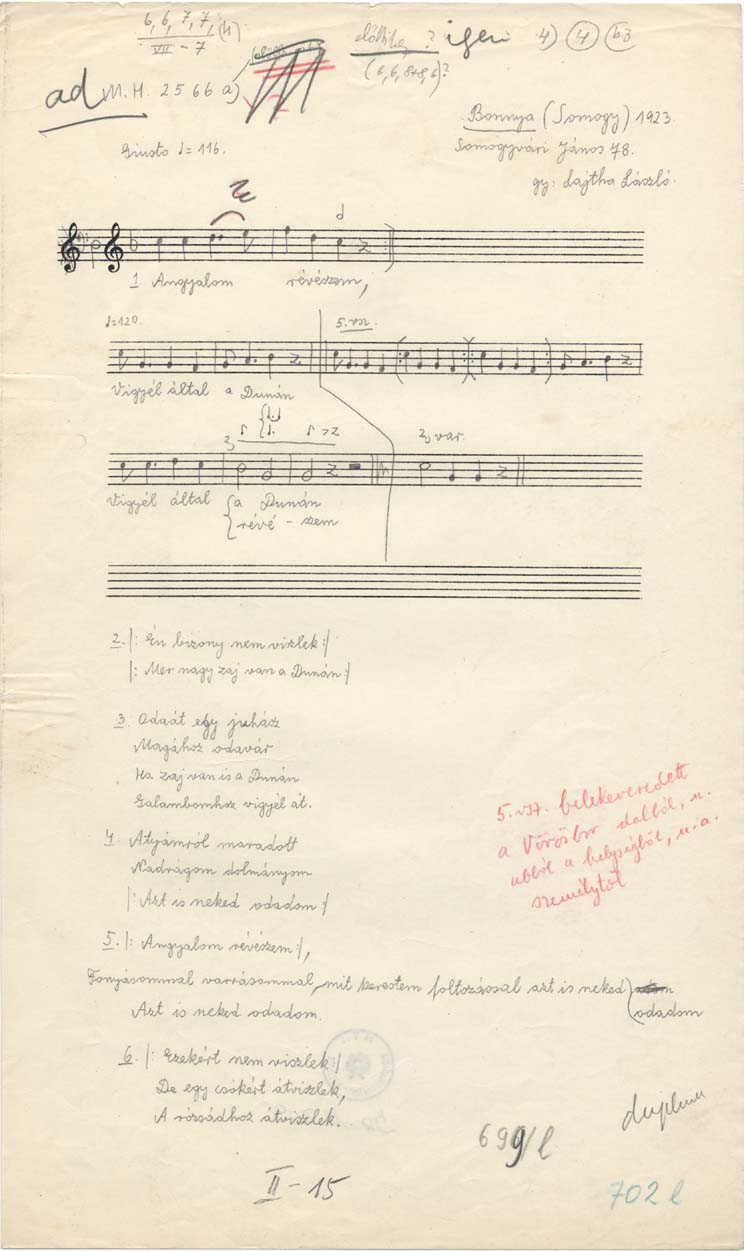 6, 6, 7, 7, (4)
VII – 7
előttike ? igen 4) 4 b3
(6, 6, 8+8, 6)?
ad M.H. 2566 a)
Bonnya (Somogy) 1923.
Somogyvári János 78.
gy: Lajtha László.
Giusto ♩= 116.
1. Angyalom révészem,
♩=120.
5. vsz.
Vigyél által a Dunán
2, var.
Vigyél által a Dunán
révé – szem
2. |: Én bizony nem vizlek :|
|: Mer nagy zaj van a Dunán :|
3. Odaát egy juhász
Magához odavár
Ha zaj van is a Dunán
Galambomhoz vigyél át.
4. Atyámról maradott
Nadrágom dolmányom
|: Azt is neked odadom :|
5. |: Angyalom révészem :|,
Fonyásommal varrásommal, mit kerestem foltozással azt is neked
odadom
Azt is neked odadom.
6. |: Ezekért nem viszlek :|
De egy csókért átviszlek,
A rózsádhoz átviszlek.
5. vsz. belekeveredett
a Vörösbor dalból, u.
abból a helységből, u.a.
személytől
duplum
699/l
II – 15
702 l